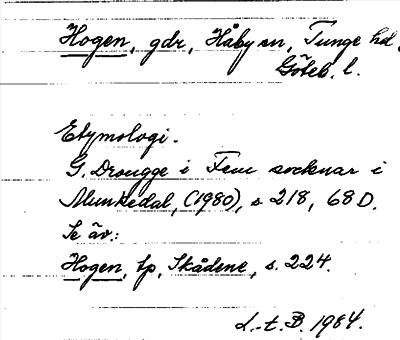 Hogen, gdr, Håby sn, Tunge hd.
Göteb. l.
Etymologi.
G. Drougge i Fem socknar i
Munkedal, (1980), s 218, 68 D.
Se äv:
Hogen, tp, Skådene, s. 224.
L.-t. B. 1984.